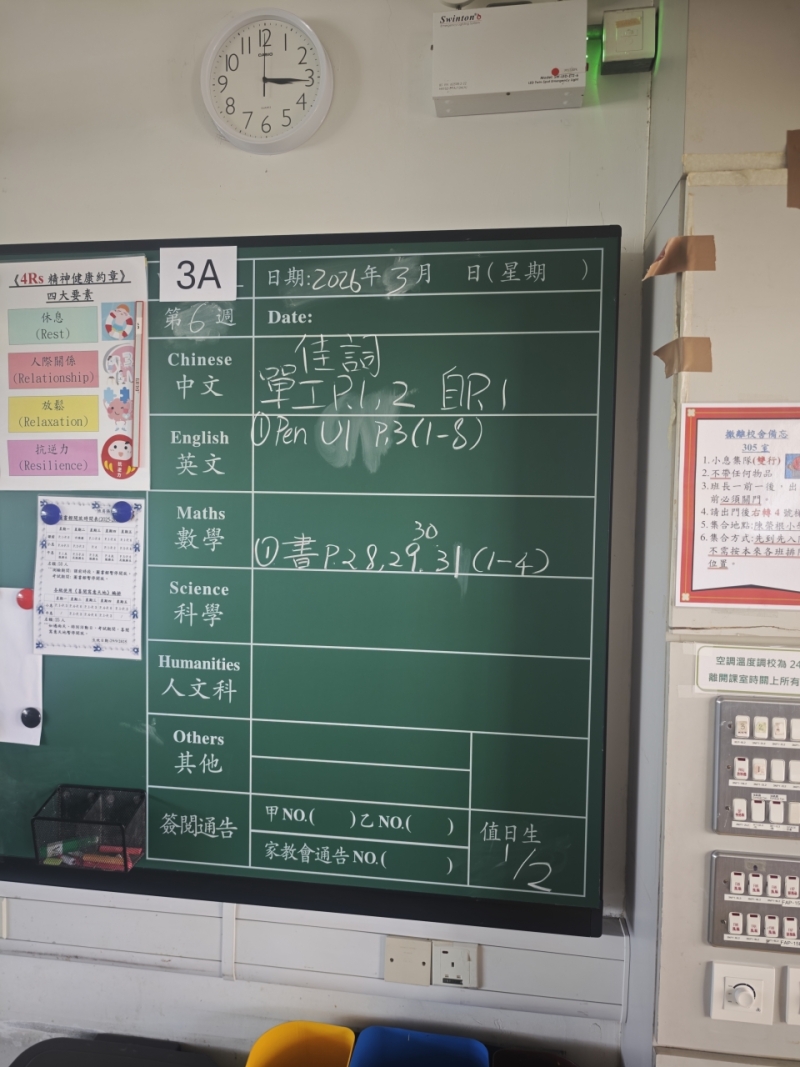 12
1
2
3
4
5
6
7
8
9
10
11
CASIO
Swinton's
《4Rs 精神健康約章》
四大要素
休息
(Rest)
人際關係
(Relationship)
放鬆
(Relaxation)
抗逆力
(Resilience)
3A
日期:2026年 3月 日(星期 )
第6週
Date:
Chinese
中文
佳詞
單工P.1,2 自P.1
English
英文
①Pen U1 P.3(1-8)
Maths
數學
30
①書P.28,29,31(1-4)
Science
科學
Humanities
人文科
Others
其他
簽閱通告
甲NO.( )乙NO.( )
家教會通告NO.( )
值日生
1/2
撤離校舍備忘
305室
1.小息集隊(雙行)
2.不帶任何物品
3.班長一前一後，出
前必須關門。
4.請出門後右轉4號
5.集合地點:陳榮根小
6.集合方式:先到先入
不需按本來各班排
位置。
空調溫度調校為24
離開課室時關上所有